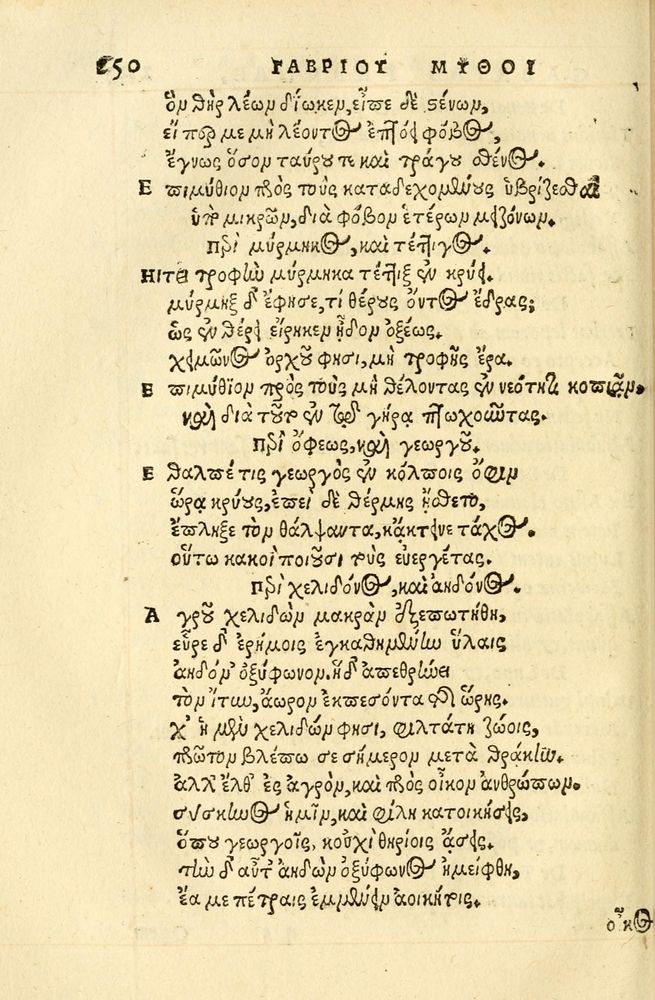 250 ΓΑΒΡΙΟΥ ΜΥΘΟΙ
ὃν θὴρ λέων διῶκεν, εἶπε δὲ στένων,
εἴπερ με μὴ λέοντος ἐπτόει φόβος,
ἔγνως ὅσον ταύρου τε καὶ τράγου σθένος.
Ε πιμύθιον πρὸς τοὺς καταδεχομένους ὑβρίζεσθαι
ὑπὸ μικρῶν, διὰ φόβον ἑτέρων μειζόνων.
Περὶ μύρμηκος, καὶ τέττιγος.
ΗΙτει τροφὴν μύρμηκα τέττιξ ἐν κρύει.
μύρμηξ δ' ἔφησε, τί θέρους ὄντος ἔδρας;
ὡς ἐν θέρει εἴρηκεν ᾖδον ὀξέως.
χειμῶνος ὀρχοῦ φησι, μὴ τροφῆς ἔρα.
Ε πιμύθιον πρὸς τοὺς μὴ θέλοντας ἐν νεότητι κοπιᾷν,
καὶ διὰ τοῦτ' ἐν τῷ γήρᾳ πτωχοῦντας.
Περὶ ὄφεως, καὶ γεωργοῦ.
Ε θαλπέ τις γεωργὸς ἐν κόλποις ὄφιν
ὥρᾳ κρύους, ἐπεὶ δὲ θέρμης ᾔσθετο,
ἔπληξε τὸν θάλψαντα, κᾄκτεινε τάχος.
οὕτω κακοὶ ποιοῦσι τοὺς εὐεργέτας.
Περὶ χελιδόνος, καὶ ἀηδόνος.
Α γροῦ χελιδὼν μακρὰν ἐξεπωτήθη,
εὗρε δ' ἐρήμοις ἐγκαθημένην ὕλαις
ἀηδόν' ὀξύφωνον. ἡ δ' ἀπεθρήνει
τὸν ἴτυν, ἄωρον ἐκπεσόντα τῆς ὥρης.
χ' ἡ μὲν χελιδών φησι, φιλτάτη ζώοις,
πρῶτον βλέπω σε σήμερον μετὰ θρᾴκην.
ἀλλ' ἔλθ' ἐς ἀγρὸν, καὶ πρὸς οἶκον ἀνθρώπων.
σύσκηνος ἡμῖν, καὶ φίλη κατοικήσεις,
ὅπου γεωργοῖς, κοὐχὶ θηρίοις ᾄσεις.
τὴν δ' αὖτ' ἀηδὼν ὀξύφωνος ἠμείφθη,
ἔα με πέτραις ἐμμένειν ἀοικήτοις.
οἶκος